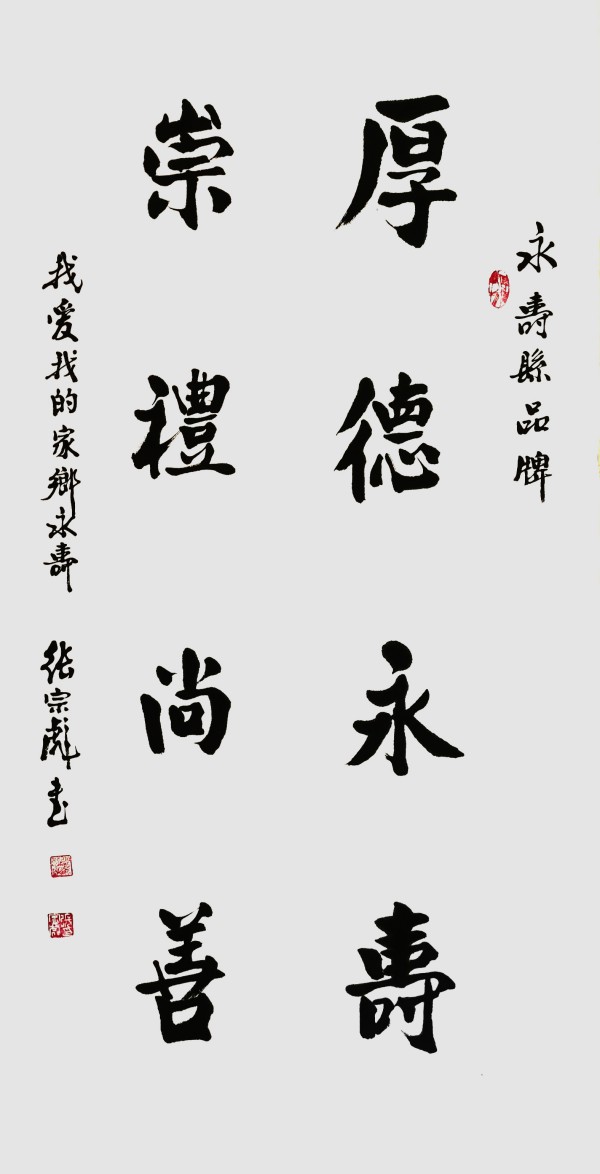 永壽縣品牌
厚德永壽
崇禮尚善
我愛我的家鄉永壽 張宗彪書